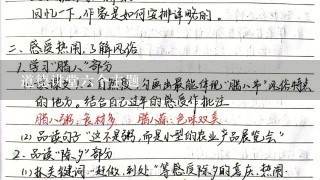 回忆一下,作家是如何安排详略的。
二、感受热闹,了解风俗
1.学习“腊八”部分
读课文,自由感受,勾画出最能体现“腊八节”风俗特点
的地方。结合自己过年的感受作批注
腊八粥:食材多 腊八蒜:色味双美
(2)品读句子“这不是粥,而是小型的农业产品展览会”
2.品读“除夕”部分
(1)抓关键词“赶做、到处”等感受除夕的喜庆、热闹